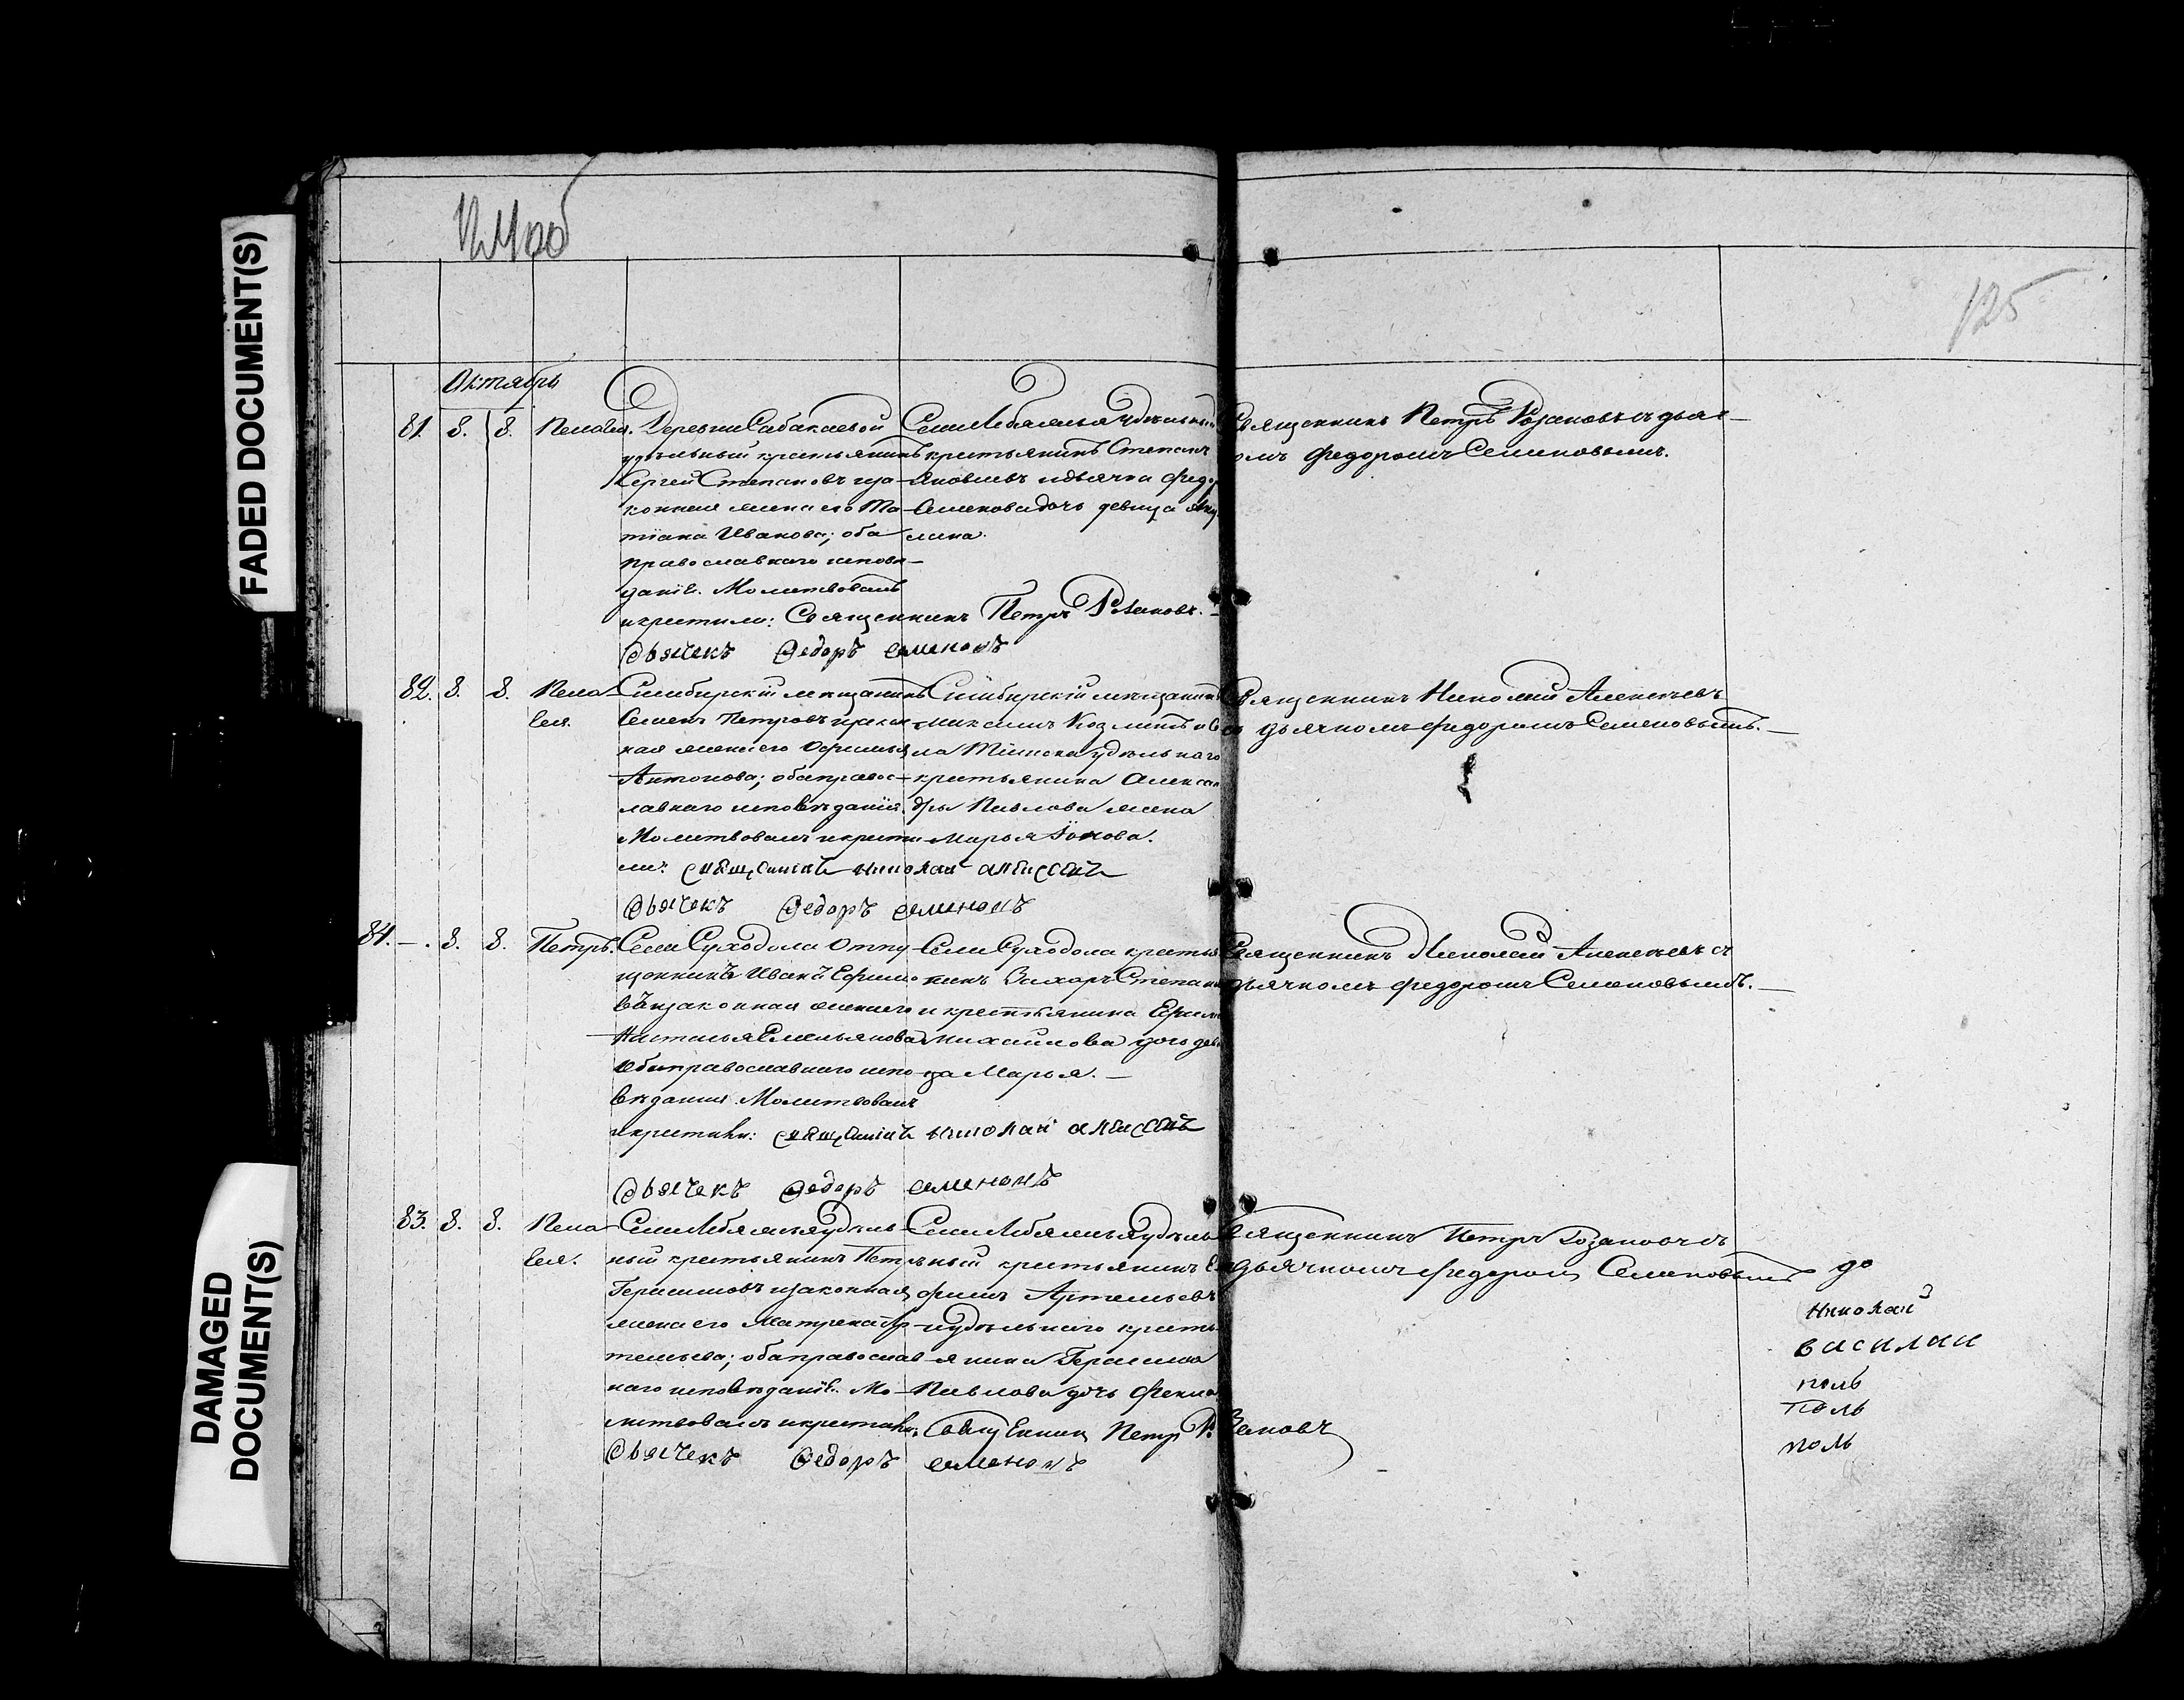 FADED DOCUMENT(S)
DAMAGED DOCUMENT(S)
125
Октябрь
81. 8. 8. Пелагея. Деревни Сабакаевой
удѣльный крестьянинъ
Сергей Степановъ и за-
конная жена его Та-
тiана Иванова; оба
православнаго испове-
данiя. Молитвовалъ
и крестилъ: Священникъ Петръ Розановъ.
Дьячекъ Федоръ Семеновъ
Села Лебяжья Удѣльный
крестьянинъ Степанъ
Яковлевъ и дьячка Федо
Семенова дочь девица Аку
лина.
Священникъ Петръ Розановъ съ дьяч-
омъ Федоромъ Семеновымъ.
82. 8. 8. Пела
гея.
Симбирскiй мещанинъ
Семенъ Петровъ и закон
ная жена его Офимья
Антонова; оба правос-
лавнаго исповѣданiя.
Молитвовалъ и крести
лъ: священникъ николай алексеевъ
Дьячекъ Федоръ Семеновъ
Симбирскiй мещанинъ
Максимъ Козминъ и Се
ла Тiинска удѣльнаго
крестьянина Алексан
дры Павлова жена
Марья Iонова.
Священникъ Николай Алексѣевъ
съ дьячкомъ Федоромъ Семеновымъ.
84. - 8. 8. Петръ.
Села Суходола Отпу
щенникъ Иванъ Ефимо
въ и законная жена его
Настасья Емельянова
оба православнаго испо
вѣданiя. Молитвовалъ
и крестилъ: священникъ николай алексеевъ
Дьячекъ Федоръ Семеновъ
Села Суходола крестья
нинъ Захаръ Степано
и крестьянина Ефима
Михайлова дочь деви
ца Марья.
Священникъ Николай Алексѣевъ съ
дьячкомъ Федоромъ Семеновымъ.
83. 8. 8. Пела
гея.
Села Лебяжья удѣль
ный крестьянинъ Петръ
Герасимовъ и законная
жена его Матрена Ар
темьева; оба православ
наго исповѣданiя. Мо-
литвовалъ и крестилъ: Священникъ Петр Розановъ
Дьячекъ Федоръ Семеновъ
Села Лебяжья удѣль
ный крестьянинъ Е
фимъ Артемьевъ
и удѣльнаго кресть
янина Герасима
Павлова дочь Фекла
Священникъ Петръ Розановъ съ
дьячкомъ Федоромъ Семеновымъ
до
Николай
василий
поль
поль
поль